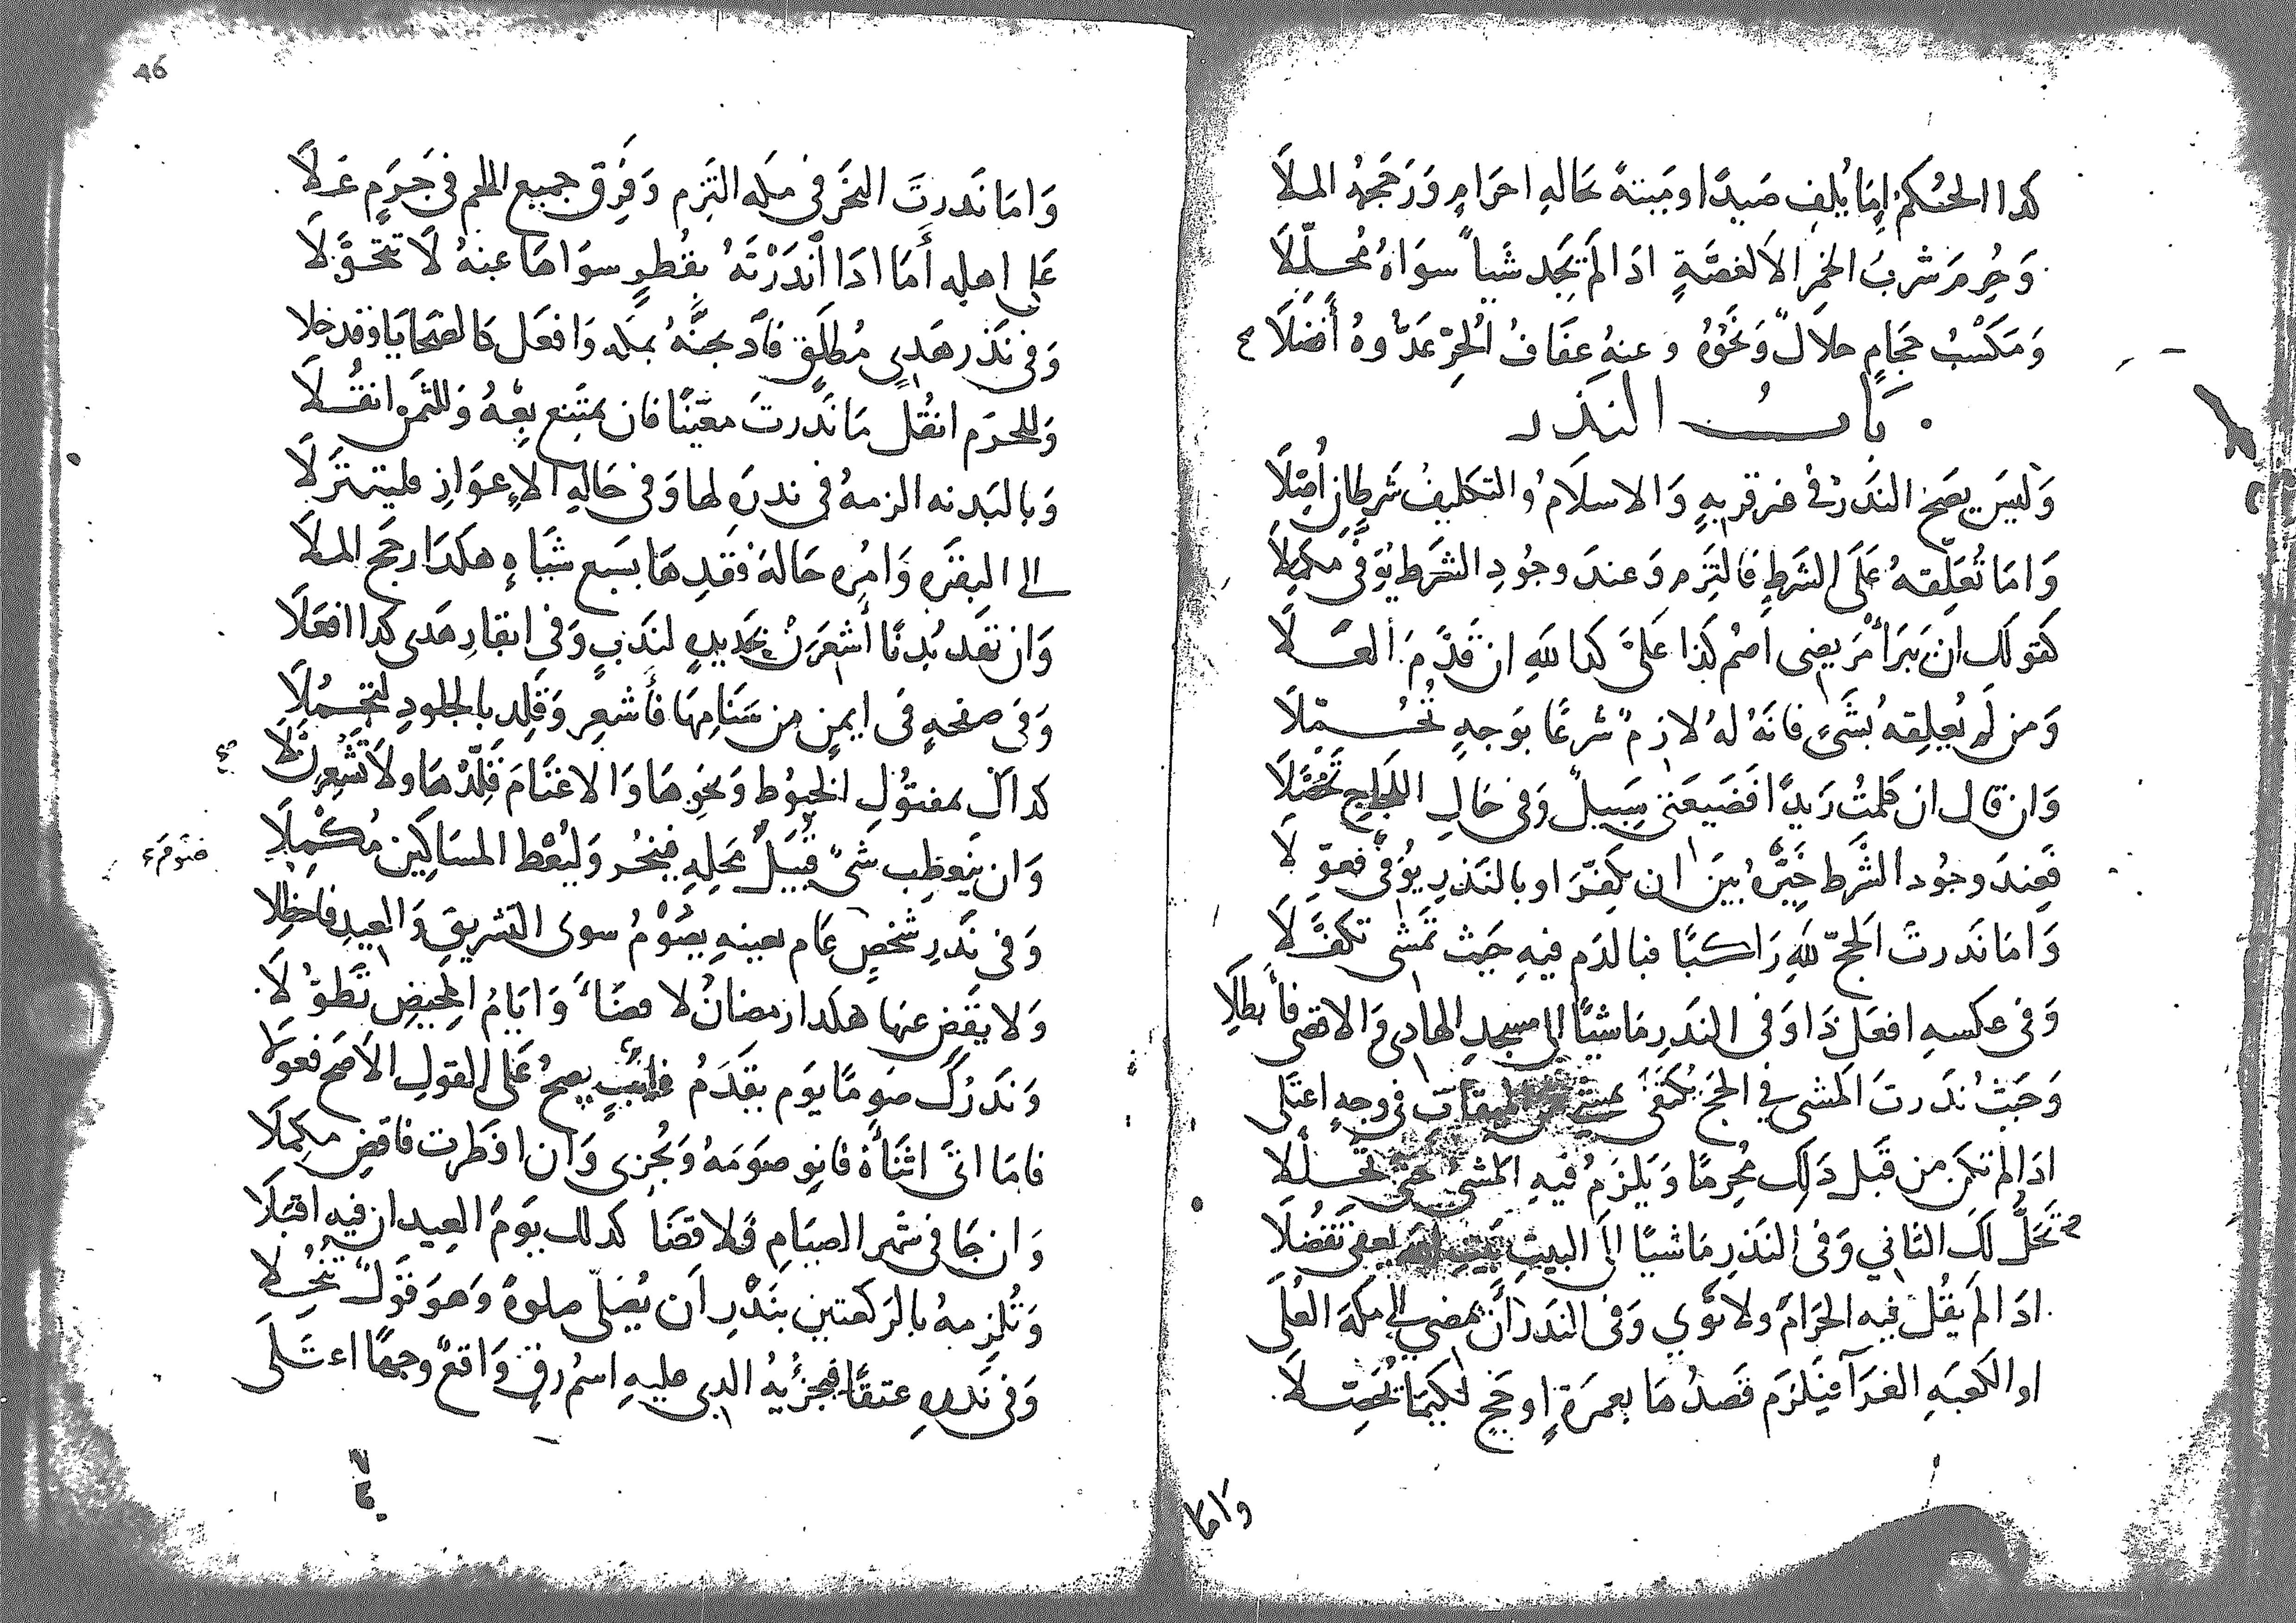 كذا الحكم اما يلف صيدا وميتة بحاله احرام ورجحه الملا
وحرم شرب الخمر الا لغصة اذا لم تجد شيا سواه محللا
ومكسب حجام حلال ونحوه وعنه عفاف الحر عدوه أفضلا
باب النذر
وليس يصح النذر في غير قربه والاسلام والتكليف شرطان أصلا
واما تعلقه على الشرط فالتزم وعند وجود الشرط يوفى مكملا
كقولك ان يبرأ مريضى اصم كذا على كذا لله ان قدم العلا
ومن لم يعلقه بشىء فانه له لازم شرعا بوجه تحملا
وان قال ان كلمت زيدا فضيعتى سبيل وفى حال اللجاج تحصلا
فعند وجود الشرط خيره بين ان يكفر او بالنذر يوفى فعولا
واما نذرت الحج لله راكبا فبالدم فيه حيث تمشى تكفلا
وفى عكسه افعل ذا وفى النذر ماشيا الى مسجد الهادى والاقصى فأبطلا
وحيث نذرت المشى في الحج يكتفى الميقات فى وجه اعتلى
اذا لم تكن من قبل ذلك محرما ويلزم فيه المشى حتى تحللا
تحلل لك الثاني وفى النذر ماشيا الى البيت بيت الله يعفى تفضلا
اذا لم يقل فيه الحرام ولا نوي وفى النذر أن يمضي الى مكة العلى
او الكعبه الغرآ فيلزم قصدها بعمرة او حج لكيما تحصلا
واما
46
واما نذرت النحر فى مكه التزم وفرق جميع اللحم فى حرم علا
على اهله أما اذا أنذرته بقطر سواها عنه لا تتحولا
وفى نذر هدى مطلق فاذبحنه بمكه وافعل كالضحايا وقد خلا
وللحرم انقل ما نذرت معينا فان يمتنع بعه وللثمن انقلا
وبالبدنه الزمه فى نذره لها وفى حاله الإعواز فليتنزلا
الى البقره وامره حالة فقدها بسبع شياه هكذا رجح الملا
وان تقد بدنا أشعرن بحديده لندب وفى ابقار هدى كذا افعلا
وفى صفحه فى ايمن من سنامها فأشعر وقلد بالجلود لتجملا
كذاك بمفتول الخيوط ونحوها والاغنام قلدها ولا تشعرن لا
وان ينعطب شى قبيل محله فينحر وليعط المساكين مكملا
وفى نذر شخص عام بعينه يصوم سوى التشريق والعيد فاحظلا
صوم
ولا يقض عنها هكذا رمضان لا قضا وايام المحيض تطولا
ونذرك صوما يوم يقدم غايب يصح على القول الاصح فعولا
فاما اتى اثناؤه فانو صومه ويجزى وان افطرت فاقض مكملا
وان جا فى شهر الصيام فلا قضا كذلك يوم العيد ان فيه اقبلا
وتلزمه بالركعتين بنذر ان يصلى صلوة وهو قول تنخلا
وفى نذره عتقا فيجزيه الذى عليه اسم رق واقع وجها اعتلى